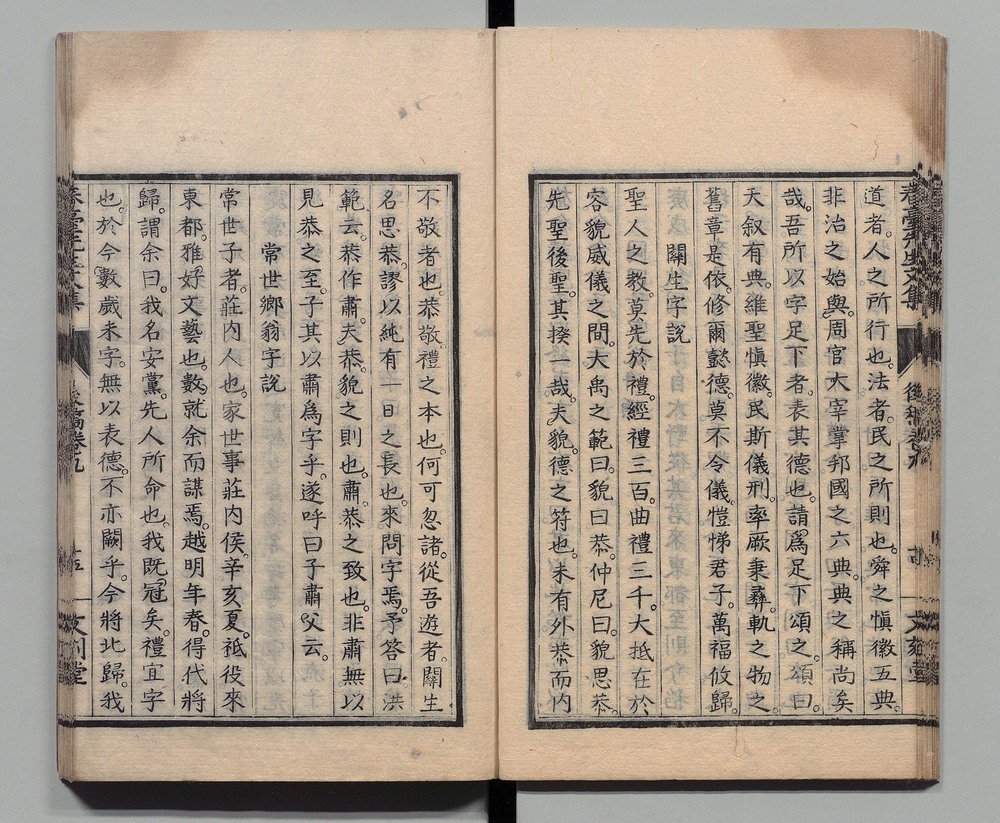 道者。人之所行也。法者。民之所則也。舜之愼徽五典
非治之始與。周官大宰掌邦國之六典。典之稱尚矣
哉。吾所以字足下者。表其德也。請爲足下頌之。頌曰。
天叙有典。維聖愼徽。民斯儀刑。率厥秉彝。軌之物之
舊章是依。修爾懿德。莫不令儀。愷悌君子。萬福攸歸。
關生字說
聖人之教。莫先於禮。經禮三百。曲禮三千。大抵在於
容貌威儀之間。大禹之範曰。貌曰恭。仲尼曰。貌思恭。
先聖後聖。其揆一哉。夫貌。德之符也。未有外恭而内
不敬者也。恭敬。禮之本也。何可忽諸。從吾遊者。關生
名思恭。謬以純有一日之長也。來問字焉。予答曰。洪
範云。恭作肅。夫恭。貌之則也。肅恭之致也。非肅無以
見恭之至。子其以肅爲字乎。遂呼曰子肅父云。
常世鄕翁字說
常世子者。莊内人也。家世事莊内侯。辛亥夏。祗役來
東都。雅好文藝也。數就余而謀焉。越明年春。得代將
歸。謂余曰。我名安黨。先人所命也。我既冠矣。禮宜字
也。於今數歲未字。無以表德。不亦闕乎。今將北歸。我
後稿卷九